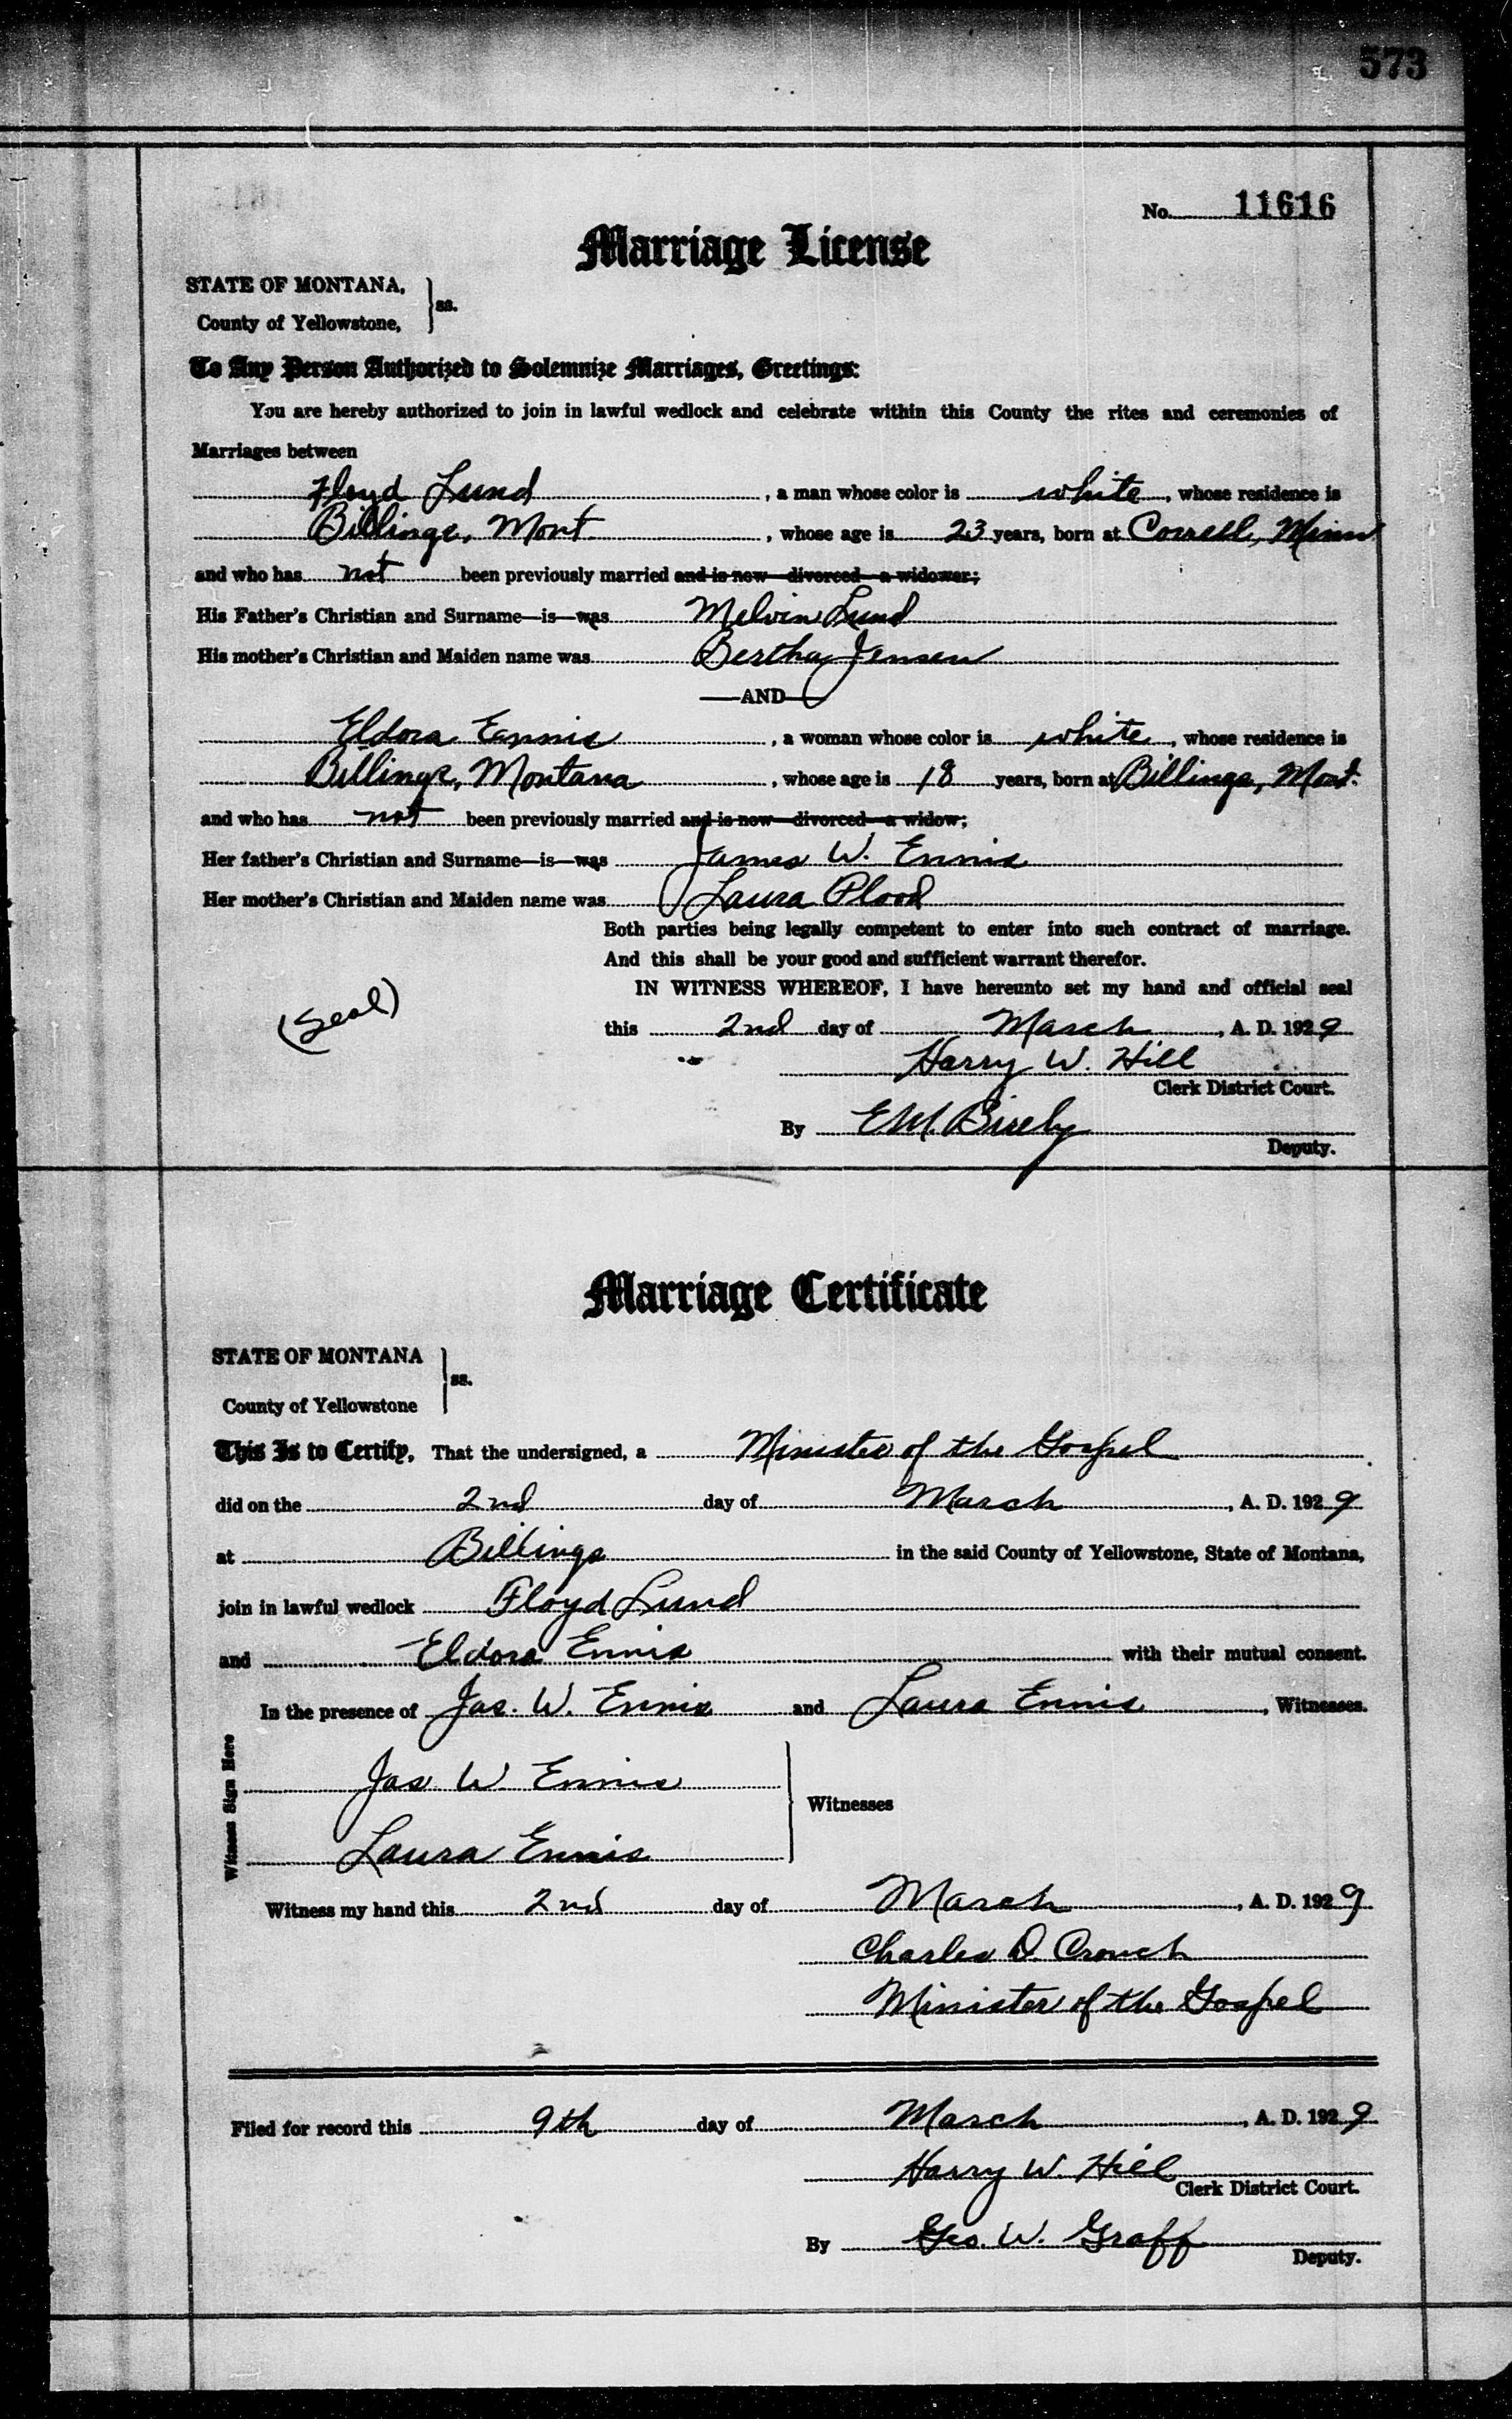 573
No. 11616
Marriage License
STATE OF MONTANA,
County of Yellowstone, } ss.
To Any Person Authorized to Solemnize Marriages, Greetings:
You are hereby authorized to join in lawful wedlock and celebrate within this County the rites and ceremonies of
Marriages between
Floyd Lund, a man whose color is white, whose residence is
Billings, Mont., whose age is 23 years, born at Correll, Minn
and who has not been previously married and is now—divorced—a widower;
His Father's Christian and Surname—is—was Melvin Lund
His mother's Christian and Maiden name was Bertha Jensen
—AND—
Eldora Ennis, a woman whose color is white, whose residence is
Billings, Montana, whose age is 18 years, born at Billings, Mont.
and who has not been previously married and is now—divorced—a widow;
Her father's Christian and Surname—is—was James W. Ennis
Her mother's Christian and Maiden name was Laura Plood
Both parties being legally competent to enter into such contract of marriage.
And this shall be your good and sufficient warrant therefor.
IN WITNESS WHEREOF, I have hereunto set my hand and official seal
(Seal)
this 2nd day of March, A. D. 1929
Harry W. Hill
Clerk District Court.
By E.M. Birely
Deputy.
Marriage Certificate
STATE OF MONTANA
County of Yellowstone } ss.
This Is to Certify, That the undersigned, a Minister of the Gospel
did on the 2nd day of March, A. D. 1929
at Billings in the said County of Yellowstone, State of Montana,
join in lawful wedlock Floyd Lund
and Eldora Ennis with their mutual consent.
In the presence of Jas. W. Ennis and Laura Ennis, Witnesses.
Witness Sign Here
Jas W Ennis
Witnesses
Laura Ennis
Witness my hand this 2nd day of March, A. D. 1929
Charles D. Crouch
Minister of the Gospel
Filed for record this 9th day of March, A. D. 1929
Harry W. Hill
Clerk District Court.
By Geo. W. Graff
Deputy.